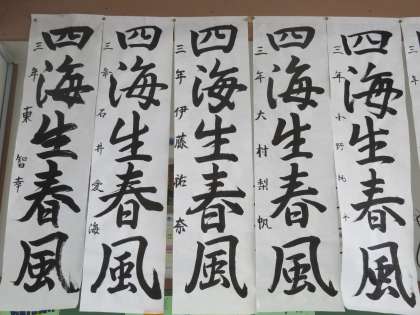 四海生春風
三年 東 智幸
四海生春風
三年 石井愛海
四海生春風
三年 伊藤祐奈
四海生春風
三年 大村梨帆
四海生春風
三年